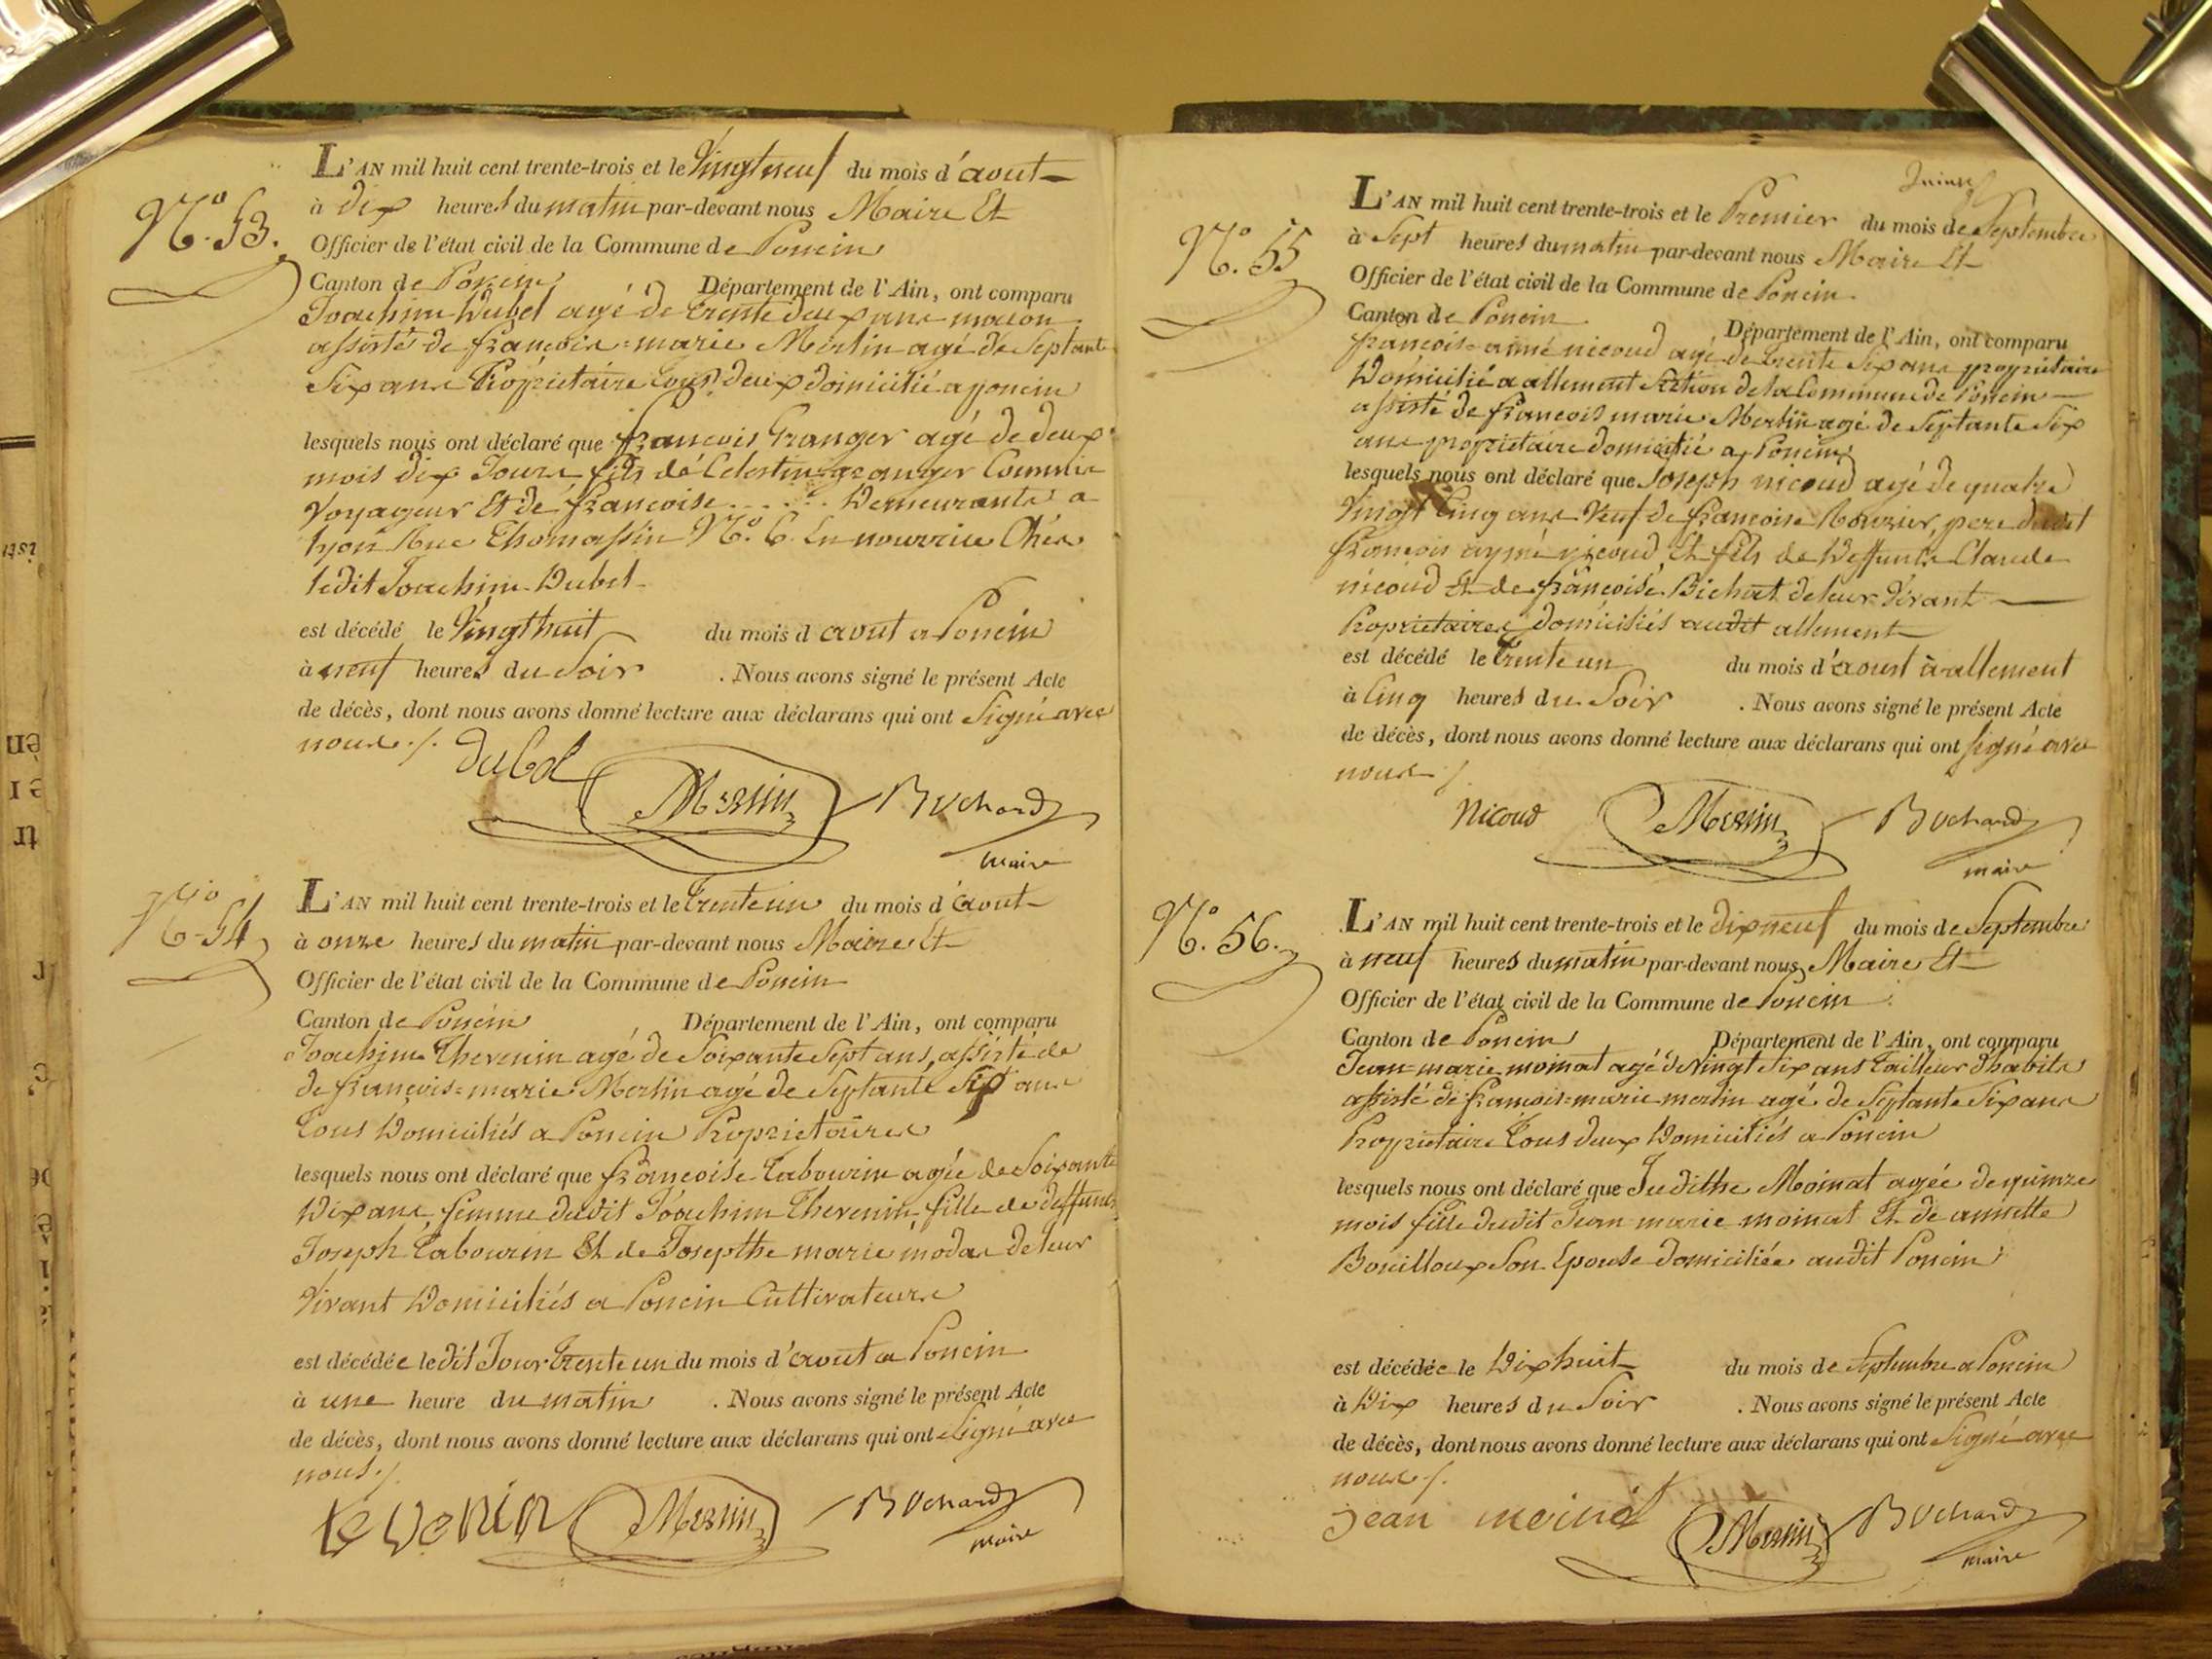 N.º 53.
L'AN mil huit cent trente-trois et le Vingt neuf du mois d'aout
à dix heures du matin par-devant nous Maire Et
Officier de l'état civil de la Commune de Poncin
Canton de Poncin Département de l'Ain, ont comparu
Joachim Dubel agé de trente deux ans macon
assisté de francois=marie Merlin agé de Septante
Six ans Propriétaire tous deux domicilié a poncin
lesquels nous ont déclaré que francois Granger agé de deux
mois dix Jours fils de Celestin granger Commis
Voyageur Et de francoise ..... Demeurants a
lyon Rue Thomassin N.º 6. En nourrice Chés
ledit Joachim Dubel
est décédé le Vingt huit du mois d aout a Poncin
à neuf heures du Soir . Nous avons signé le présent Acte
de décès, dont nous avons donné lecture aux déclarans qui ont Signé avec
nous ./.
dubel Merlin Bochard
maire
N.º 54
L'AN mil huit cent trente-trois et le trente un du mois d'aout
à onze heures du matin par-devant nous Maire Et
Officier de l'état civil de la Commune de Poncin
Canton de Poncin Département de l'Ain, ont comparu
Joachim Thevenin agé de Soixante Sept ans, assisté de
de francois=marie Merlin agé de Septante Six ans
tous Domiciliés a Poncin Propriétaires
lesquels nous ont déclaré que francoise Labourin agée de Soixante
Dix ans, femme dudit Joachim Thevenin, fille de deffunts
Joseph Labourin Et de Josepthe marie modas de leur
Vivant Domiciliés a Poncin Cultivateurs
est décédée ledit Jour trente un du mois d'aout a Poncin
à une heure du matin . Nous avons signé le présent Acte
de décès, dont nous avons donné lecture aux déclarans qui ont Signé avec
nous ./.
tevenin Merlin Bochard
maire
N.º 55
L'AN mil huit cent trente-trois et le Premier du mois de Septembre
à Sept heures du matin par-devant nous Maire Et
Officier de l'état civil de la Commune de Poncin
Canton de Poncin Département de l'Ain, ont comparu
francois=aimé nicoud agé de trente Six ans propriétaire
Domicilié a allement Section de la Commune de Poncin
assisté de francois marie Merlin agé de Septante Six
ans propriétaire domicilié a Poncin
lesquels nous ont déclaré que Joseph nicoud agé de quatre
Vingt Cinq ans Veuf de francoise Rouzier, pere dudit
francois aymé nicoud, Et fils de Deffunts Claude
nicoud Et de francoise Bichat de leur Vivant
Propriétaires domiciliés audit allement
est décédé le trente un du mois d'aoust à allement
à Cinq heures du Soir . Nous avons signé le présent Acte
de décès, dont nous avons donné lecture aux déclarans qui ont Signé avec
nous ./.
Nicoud Merlin Bochard
maire
N.º 56.
L'AN mil huit cent trente-trois et le dix neuf du mois de Septembre
à neuf heures du matin par-devant nous Maire Et
Officier de l'état civil de la Commune de Poncin
Canton de Poncin Département de l'Ain, ont comparu
Jean=marie moinat agé de Vingt Six ans tailleur d'habits
assisté de francois=marie merlin agé de Septante Six ans
Propriétaire tous deux Domiciliés a Poncin
lesquels nous ont déclaré que Judithe Moinat agée de quinze
mois fille dudit Jean marie moinat Et de annette
Bouilloux Son Epouse domiciliée audit Poncin
est décédée le Dix huit du mois de Septembre a Poncin
à Dix heures du Soir . Nous avons signé le présent Acte
de décès, dont nous avons donné lecture aux déclarans qui ont Signé avec
nous ./.
Jean moinat Merlin Bochard
maire